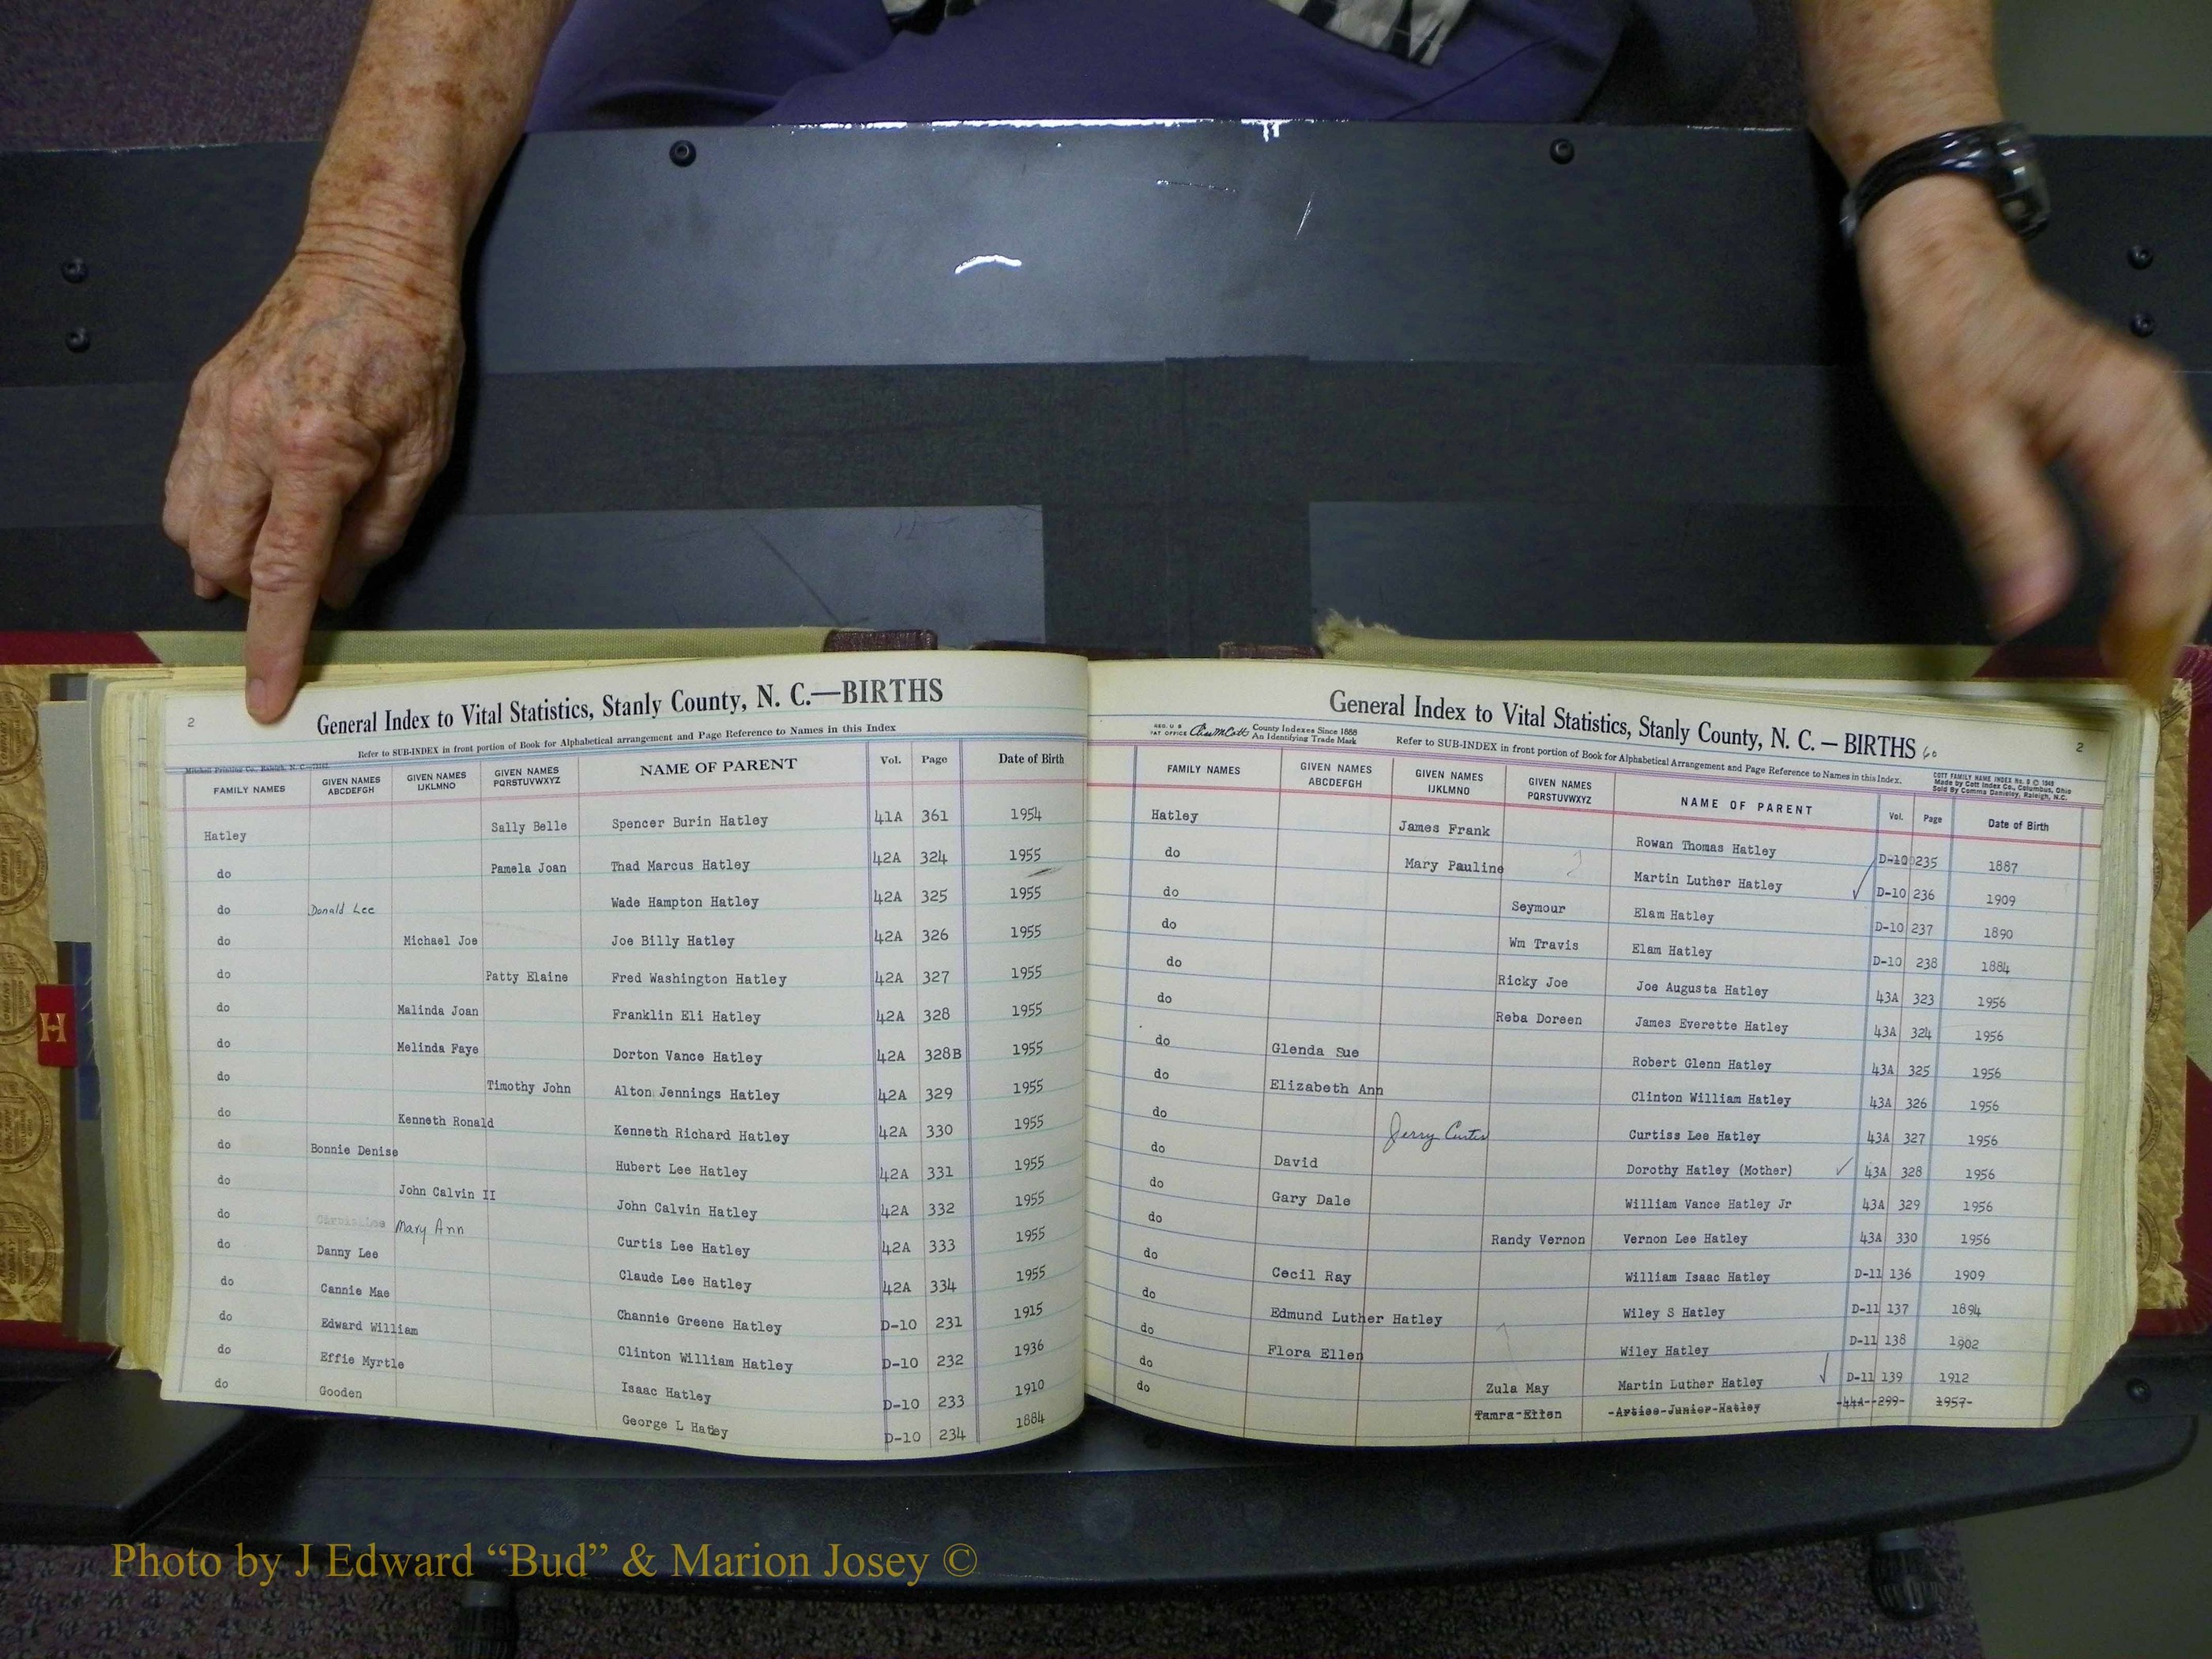 2
General Index to Vital Statistics, Stanly County, N. C.—BIRTHS
Refer to SUB-INDEX in front portion of Book for Alphabetical arrangement and Page Reference to Names in this Index
Mitchell Printing Co., Raleigh, N. C.
FAMILY NAMES GIVEN NAMES ABCDEFGH GIVEN NAMES IJKLMNO GIVEN NAMES PQRSTUVWXYZ NAME OF PARENT Vol. Page Date of Birth
Hatley Sally Belle Spencer Burin Hatley 41A 361 1954
do Pamela Joan Thad Marcus Hatley 42A 324 1955
do Donald Lee Wade Hampton Hatley 42A 325 1955
do Michael Joe Joe Billy Hatley 42A 326 1955
do Patty Elaine Fred Washington Hatley 42A 327 1955
do Malinda Joan Franklin Eli Hatley 42A 328 1955
do Melinda Faye Dorton Vance Hatley 42A 328B 1955
do Timothy John Alton Jennings Hatley 42A 329 1955
do Kenneth Ronald Kenneth Richard Hatley 42A 330 1955
do Bonnie Denise Hubert Lee Hatley 42A 331 1955
do John Calvin II John Calvin Hatley 42A 332 1955
do Mary Ann Curtis Lee Hatley 42A 333 1955
do Danny Lee Claude Lee Hatley 42A 334 1955
do Cannie Mae Channie Greene Hatley D-10 231 1915
do Edward William Clinton William Hatley D-10 232 1936
do Effie Myrtle Isaac Hatley D-10 233 1910
do Gooden George L Hatley D-10 234 1884
General Index to Vital Statistics, Stanly County, N. C. — BIRTHS 60
2
REG. U S PAT OFFICE County Indexes Since 1888 An Identifying Trade Mark
Refer to SUB-INDEX in front portion of Book for Alphabetical Arrangement and Page Reference to Names in this Index.
COTT FAMILY NAME INDEX No. 2 © 1948
Made by Cott Index Co., Columbus, Ohio
Sold By Comma Danieley, Raleigh, N.C.
FAMILY NAMES GIVEN NAMES ABCDEFGH GIVEN NAMES IJKLMNO GIVEN NAMES PQRSTUVWXYZ NAME OF PARENT Vol. Page Date of Birth
Hatley James Frank Rowan Thomas Hatley D-10 235 1887
do Mary Pauline Martin Luther Hatley D-10 236 1909
do Seymour Elam Hatley D-10 237 1890
do Wm Travis Elam Hatley D-10 238 1884
do Ricky Joe Joe Augusta Hatley 43A 323 1956
do Reba Doreen James Everette Hatley 43A 324 1956
do Glenda Sue Robert Glenn Hatley 43A 325 1956
do Elizabeth Ann Clinton William Hatley 43A 326 1956
do Jerry Curtis Curtiss Lee Hatley 43A 327 1956
do David Dorothy Hatley (Mother) 43A 328 1956
do Gary Dale William Vance Hatley Jr 43A 329 1956
do Randy Vernon Vernon Lee Hatley 43A 330 1956
do Cecil Ray William Isaac Hatley D-11 136 1909
do Edmund Luther Hatley Wiley S Hatley D-11 137 1894
do Flora Ellen Wiley Hatley D-11 138 1902
do Zula May Martin Luther Hatley D-11 139 1912
do Tamra-Ellen Artice-Junior-Hatley 44A 299 1957
H
Photo by J Edward “Bud” & Marion Josey ©